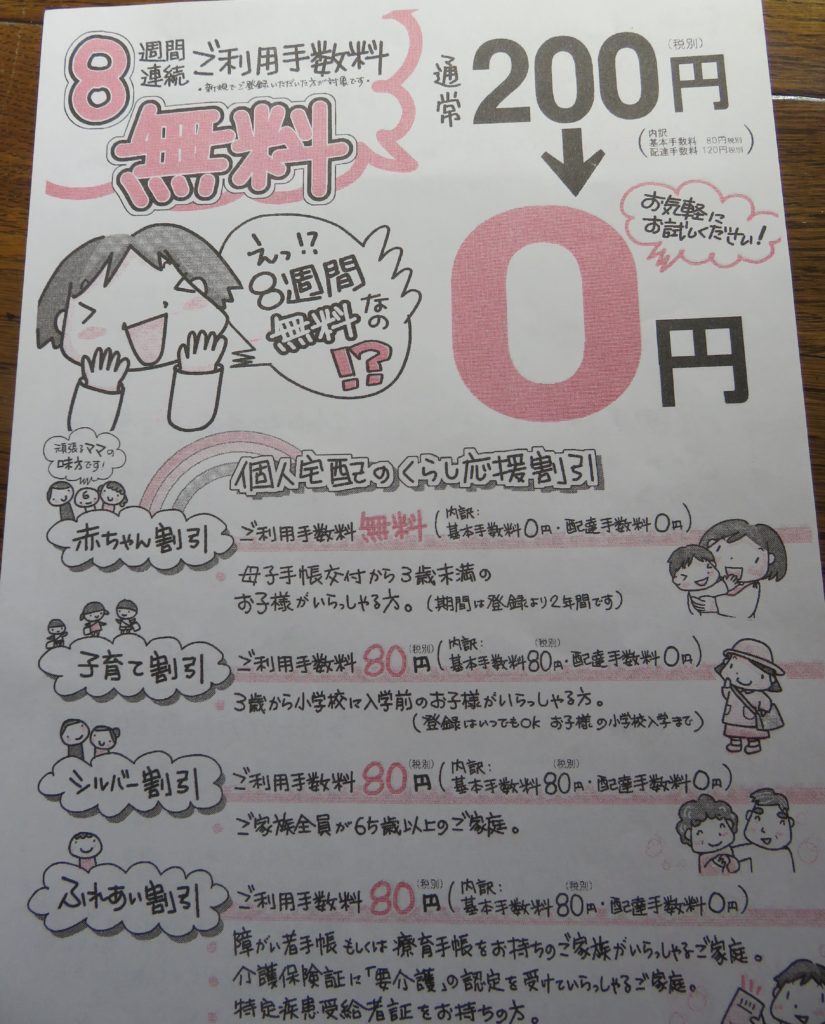 8週間連続 ご利用手数料
・新規でご登録いただいた方が対象です・
無料
通常200円(税別)
(内訳
基本手数料 80円税別
配達手数料 120円税別)
0円
お気軽に
お試しください!
えっ!?
8週間
無料なの
!?
頑張るママの
味方です!
個人宅配のくらし応援割引
赤ちゃん割引 ご利用手数料無料(内訳:基本手数料0円・配達手数料0円)
・母子手帳交付から3歳未満の
お子様がいらっしゃる方。(期間は登録より2年間です)
子育て割引 ご利用手数料80円(税別)(内訳:基本手数料80円(税別)・配達手数料0円)
・3歳から小学校に入学前のお子様がいらっしゃる方。
(登録はいつでもOK お子様の小学校入学まで)
シルバー割引 ご利用手数料80円(税別)(内訳:基本手数料80円(税別)・配達手数料0円)
・ご家族全員が65歳以上のご家庭。
ふれあい割引 ご利用手数料80円(税別)(内訳:基本手数料80円(税別)・配達手数料0円)
・障がい者手帳もしくは療育手帳をお持ちのご家族がいらっしゃるご家庭。
・介護保険証に「要介護」の認定を受けていらっしゃるご家庭。
・特定疾患受給者証をお持ちの方。